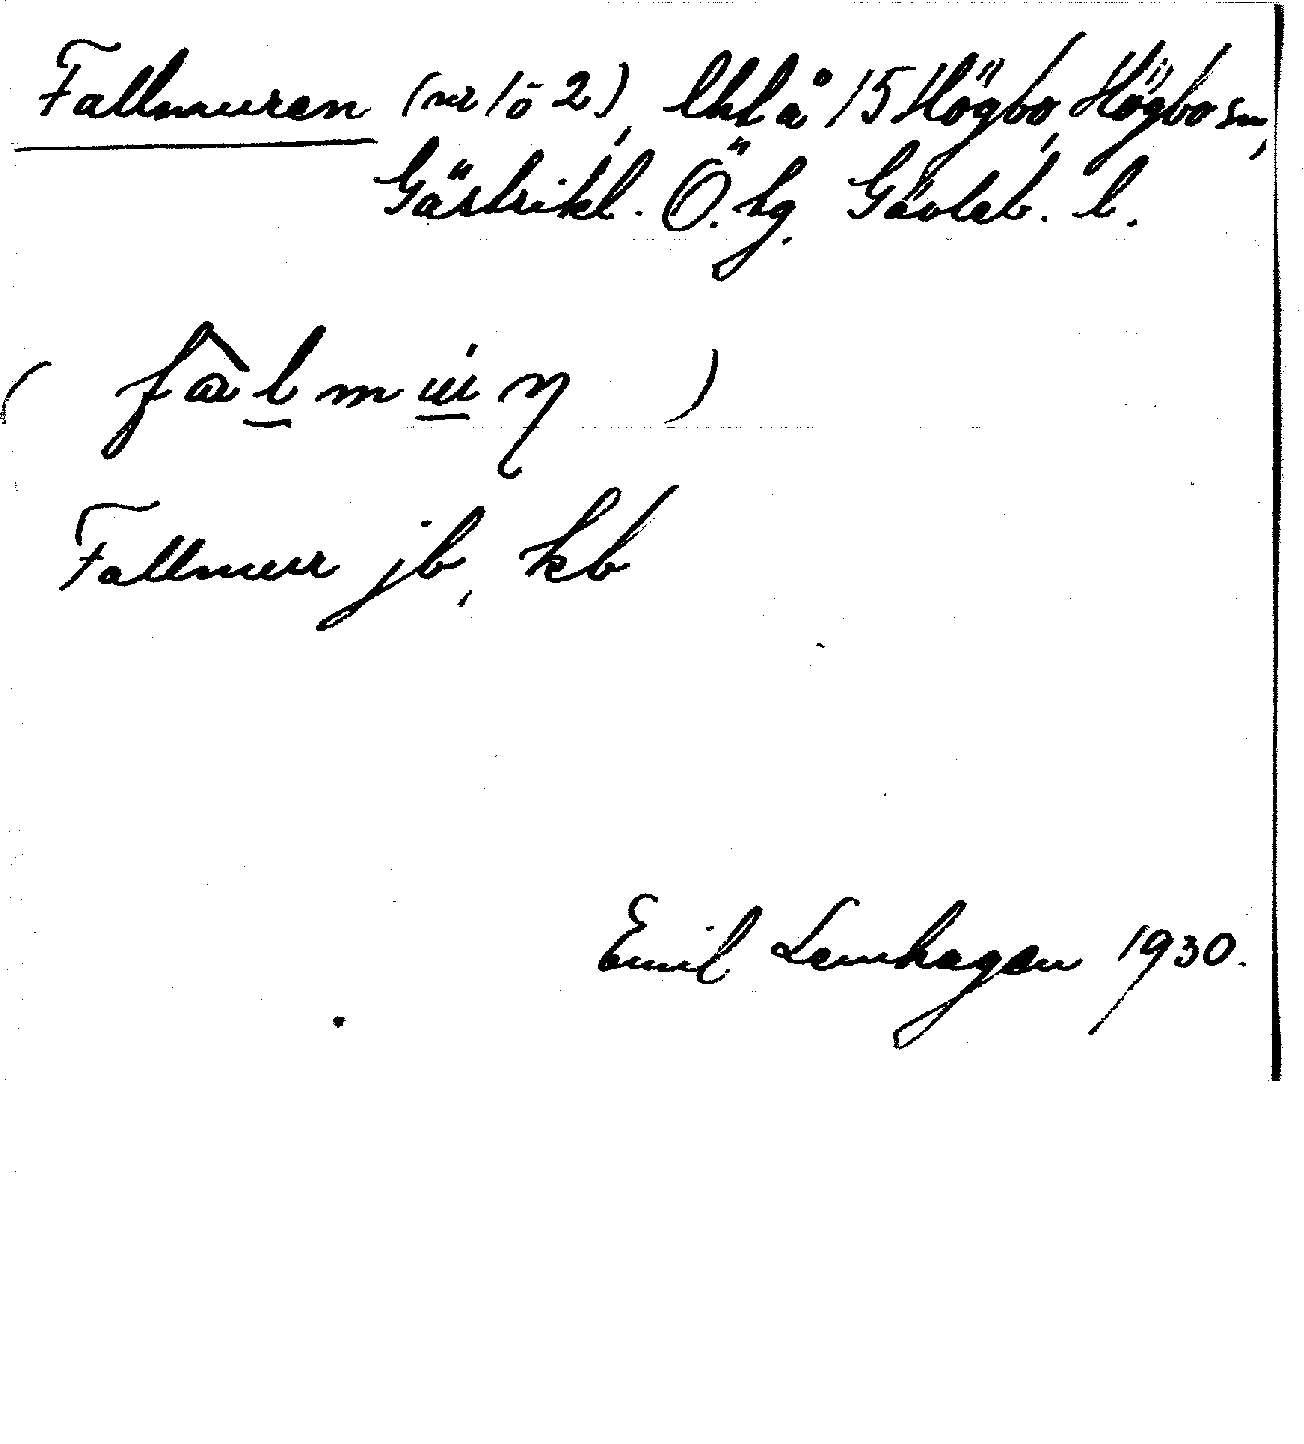 Fallmuren (nr 1 o 2), lht å 15 Högbo, Högbo sn,
Gästrikl. Ö. hg. Gävleb. l.
Fallmur jb, kb
Emil Lennhagen 1930.